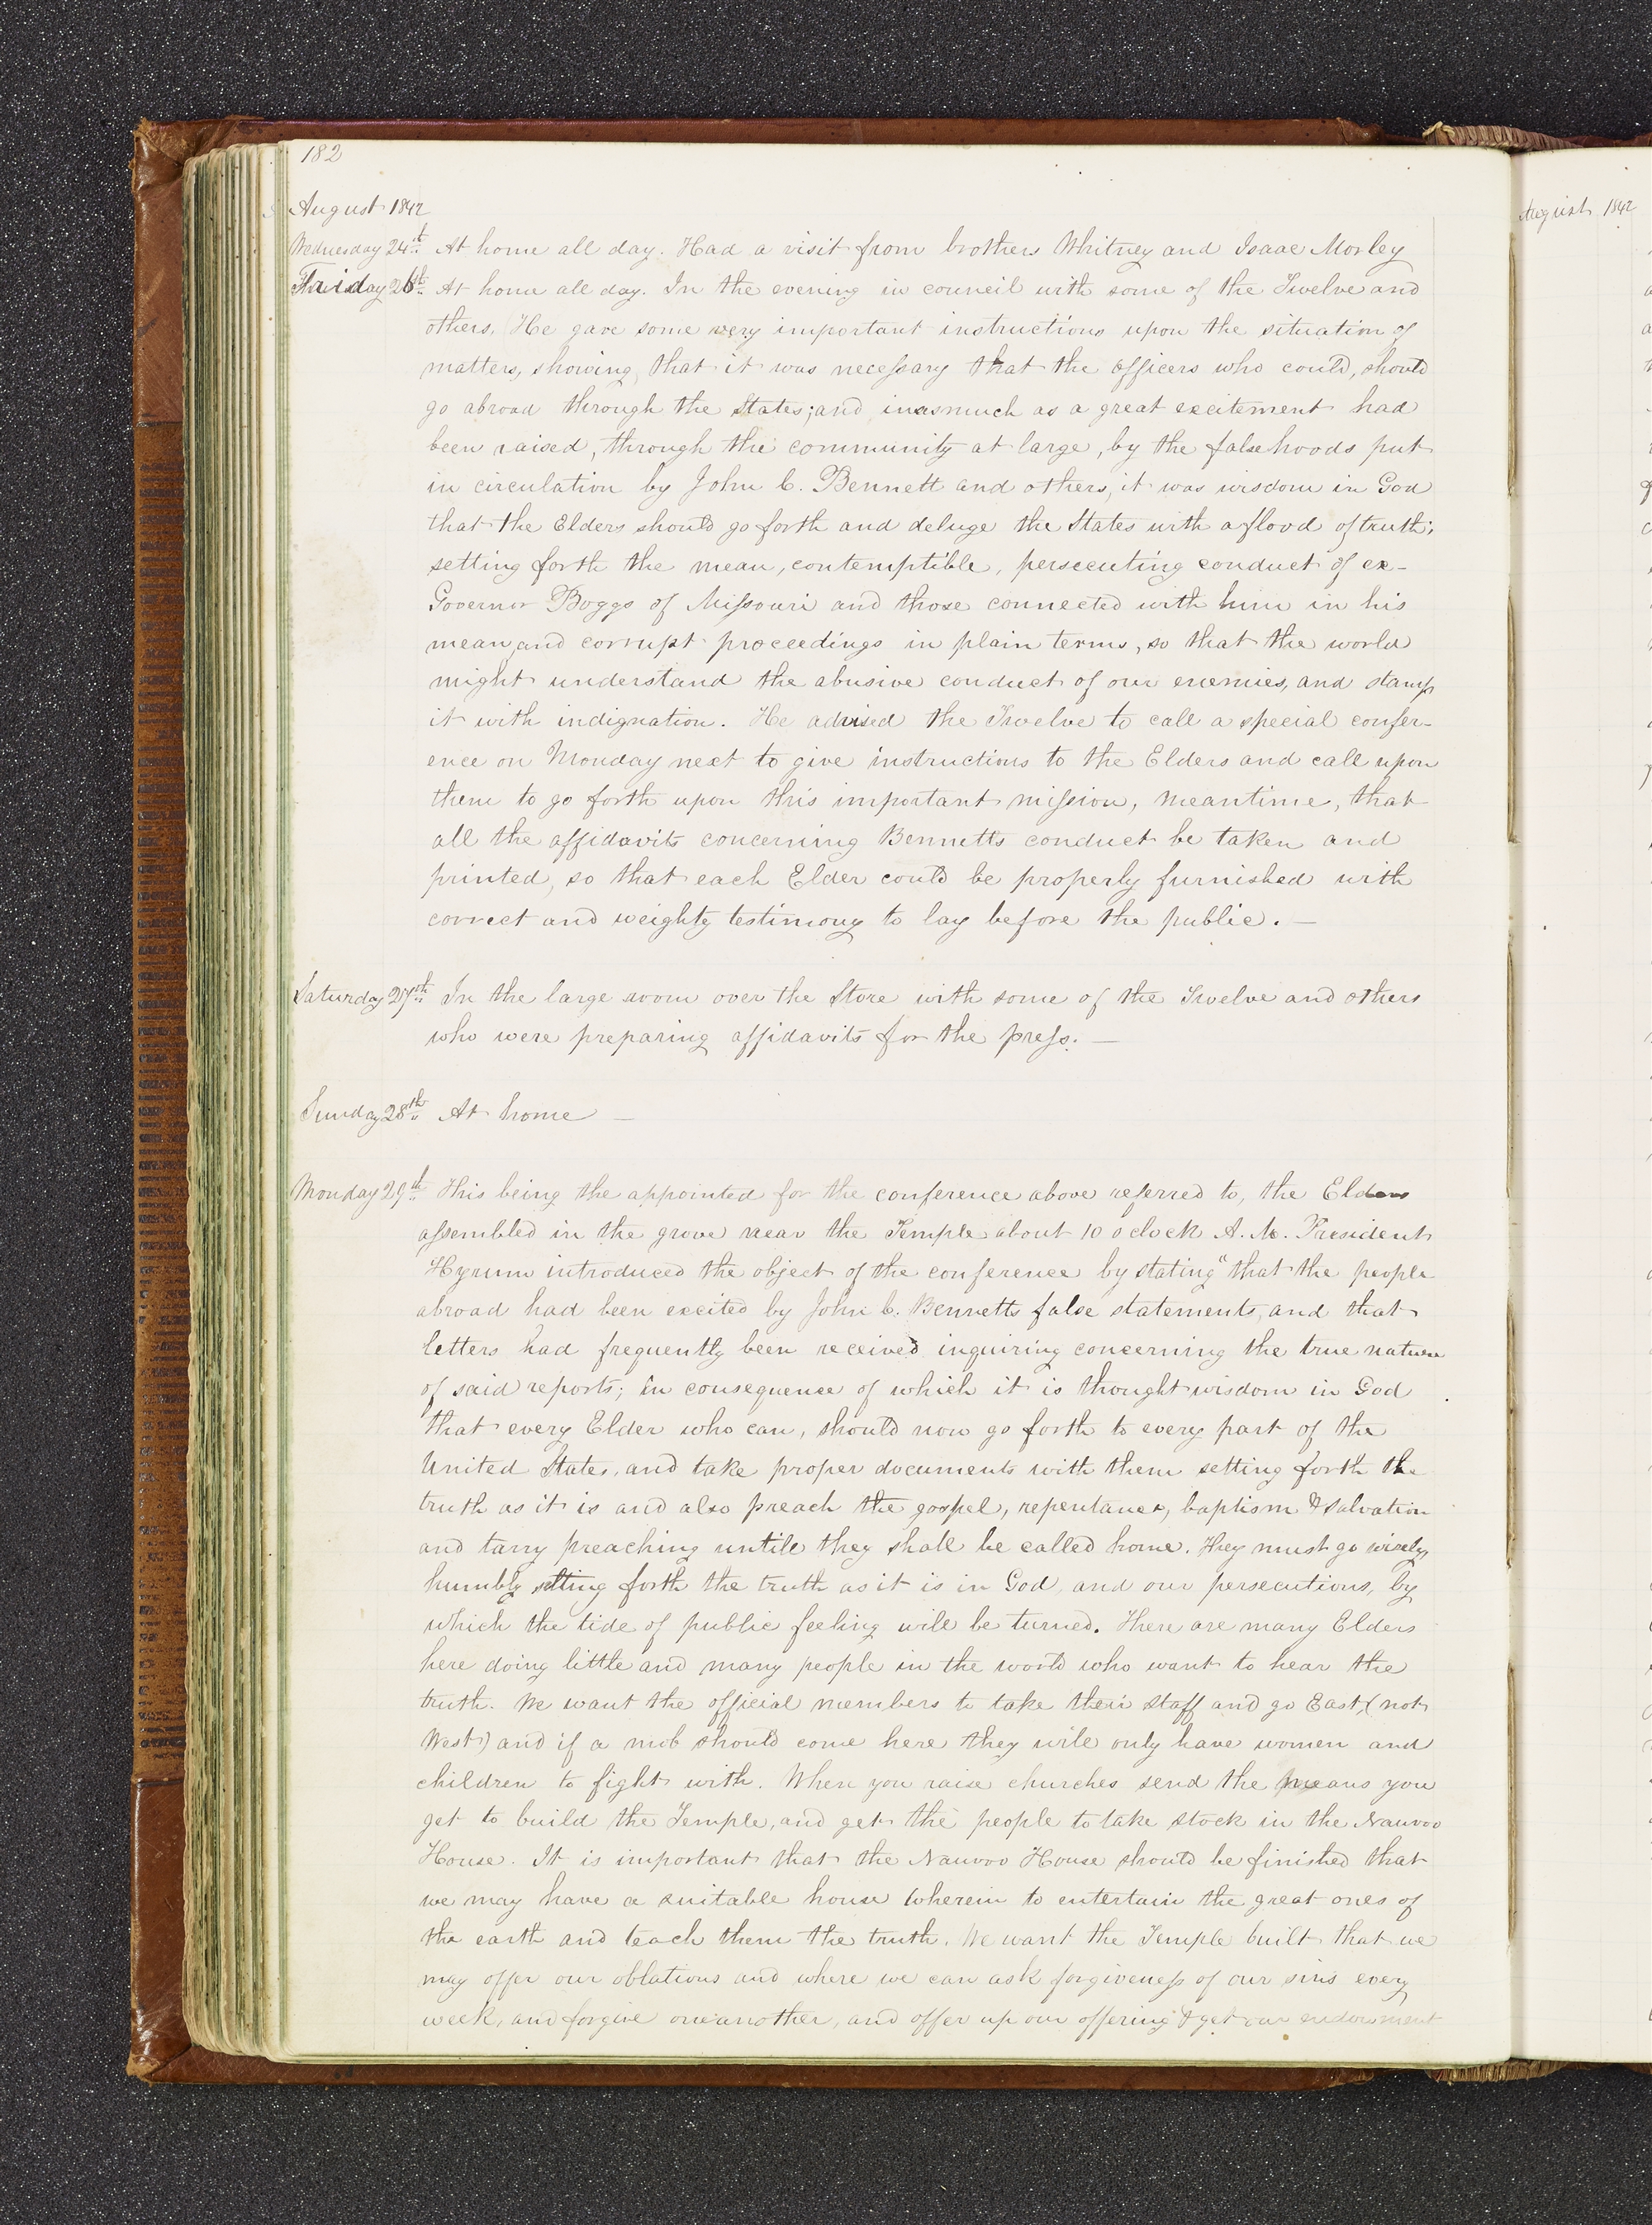 182
August 1842
Wednesday 24th At home all day. Had a visit from brothers Whitney and Isaac Morley
Friday 26th At home all day. In the evening in council with some of the Twelve and
others. He gave some very important instructions upon the situation of
matters, showing, that it was necessary that the officers who could, should
go abroad through the States; and inasmuch as a great excitement had
been raised, through the community at large, by the falsehoods put
in circulation by John C. Bennett and others, it was wisdom in God
that the Elders should go forth and deluge the States with a flood of truth;
setting forth the mean, contemptible, persecuting conduct of ex-
Governor Boggs of Missouri and those connected with him in his
mean, and corrupt proceedings in plain terms, so that the world
might understand the abusive conduct of our enemies, and stamp
it with indignation. He advised the Twelve to call a special confer-
ence on Monday next to give instructions to the Elders and call upon
them to go forth upon this important mission, meantime, that
all the affidavits concerning Bennetts conduct be taken and
printed, so that each Elder could be properly furnished with
correct and weighty testimony to lay before the public. —
Saturday 27th In the large room over the Store with some of the Twelve and others
who were preparing affidavits for the press. —
Sunday 28th At home —
Monday 29th This being the appointed for the conference above referred to, the Elders
assembled in the grove near the Temple about 10 o clock A. M. President
Hyrum introduced the object of the conference by stating "that the people
abroad had been excited by John C. Bennetts false statements, and that
letters had frequently been received inquiring concerning the true nature
of said reports; in consequence of which it is thought wisdom in God
that every Elder who can, should now go forth to every part of the
United States, and take proper documents with them setting forth the
truth as it is and also preach the gospel, repentance, baptism & salvation
and tarry preaching untill they shall be called home. They must go wisely,
humbly setting forth the truth as it is in God, and our persecutions, by
which the tide of public feeling will be turned. There are many Elders
here doing little and many people in the world who want to hear the
truth. We want the official members to take their staff and go East, (not
West) and if a mob should come here they will only have women and
children to fight with. When you raise churches send the means you
get to build the Temple, and get the people to take stock in the Nauvoo
House. It is important that the Nauvoo House should be finished that
we may have a suitable house wherein to entertain the great ones of
the earth and teach them the truth. We want the Temple built that we
may offer our oblations and where we can ask forgiveness of our sins every
week, and forgive one another, and offer up our offering & get our endowment
August 1842